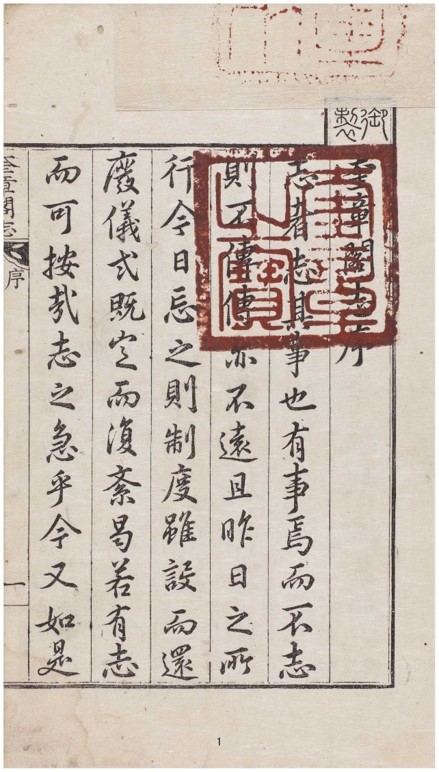 御製
奎章閣志序
志者志其事也有事焉而不志
則不傳傳亦不遠且昨日之所
行今日忘之則制度雖設而還
廢儀式既定而復紊曷若有志
而可按哉志之急乎今又如是
奎章閣志
序
一
1